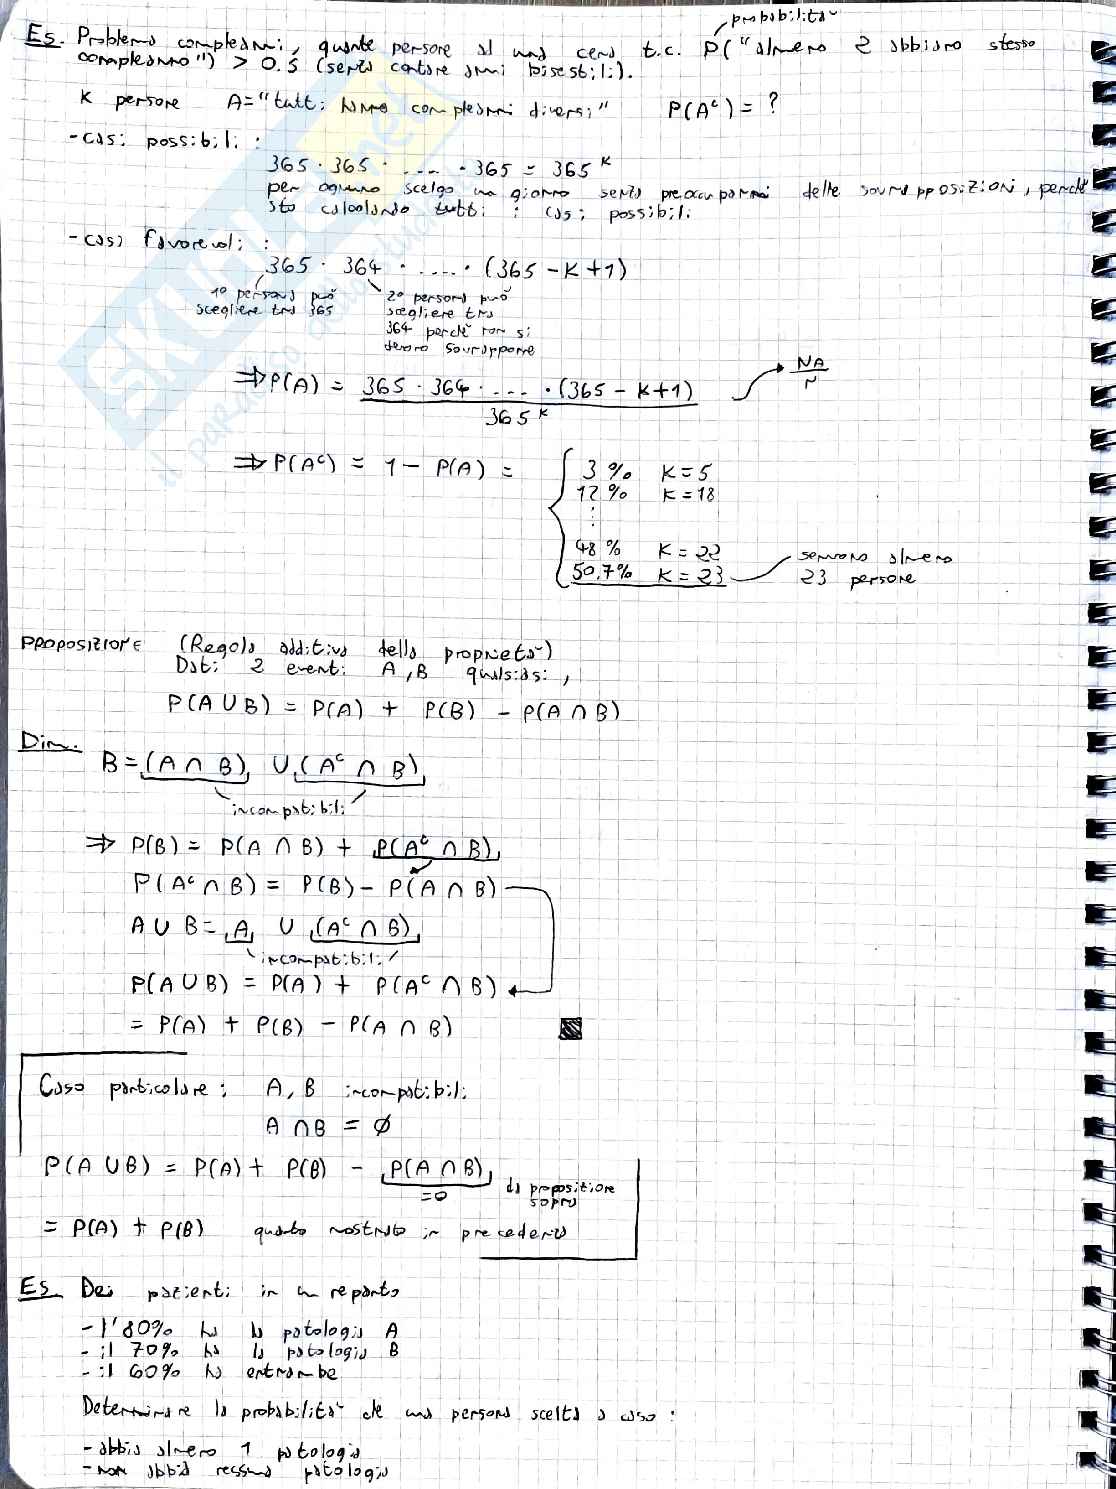 probabilità
Es. Problema compleanni, quante persone ad una cena t.c. P("almeno 2 abbiano stesso
compleanno") > 0.5 (senza contare anni bisestili).
K persone A="tutti hanno compleanni diversi" P(A^c) = ?
- casi possibili :
365 · 365 · .... · 365 = 365^K
per ognuno scelgo un giorno senza preoccuparmi delle sovrapposizioni, perché
sto calcolando tutti i casi possibili
- casi favorevoli :
365 · 364 · ..... · (365 - K + 1)
1° persona può
scegliere tra 365
2° persona può
scegliere tra
364 perché non si
devono sovrapporre
⇒ P(A) = 365 · 364 · .... · (365 - K + 1) / 365^K
NA / N
⇒ P(A^c) = 1 - P(A) =
3 % K = 5
12 % K = 18
⋮
48 % K = 22
50,7 % K = 23
servono almeno
23 persone
PROPOSIZIONE (Regola additiva della proprietà)
Dati 2 eventi A, B qualsiasi,
P(A ∪ B) = P(A) + P(B) - P(A ∩ B)
Dim.
B = (A ∩ B) ∪ (A^c ∩ B)
incompatibili
⇒ P(B) = P(A ∩ B) + P(A^c ∩ B)
P(A^c ∩ B) = P(B) - P(A ∩ B)
A ∪ B = A ∪ (A^c ∩ B)
incompatibili
P(A ∪ B) = P(A) + P(A^c ∩ B)
= P(A) + P(B) - P(A ∩ B)
Caso particolare : A, B incompatibili
A ∩ B = ∅
P(A ∪ B) = P(A) + P(B) - P(A ∩ B)
=0
da proposizione
sopra
= P(A) + P(B) quanto mostrato in precedenza
Es. Dei pazienti in un reparto
- l'80% ha la patologia A
- il 70% ha la patologia B
- il 60% ha entrambe
Determinare la probabilità che una persona scelta a caso :
- abbia almeno 1 patologia
- non abbia nessuna patologia